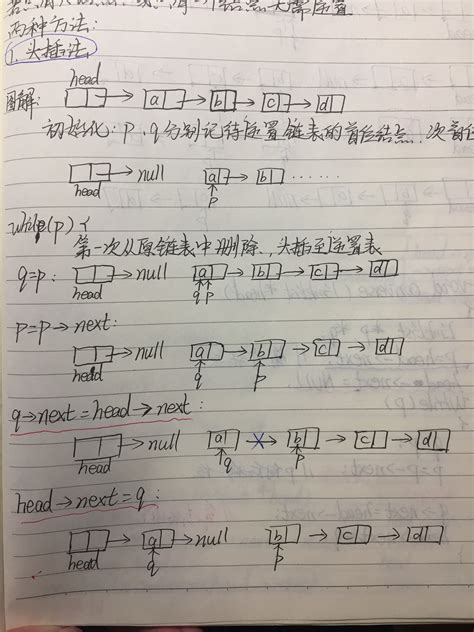 两种方法:
1. 头插法
head
图解: a b c d
初始化: p、q分别记待逆置链表的首位结点、次首位
null a b ......
head p
while(p) {
第一次从原链表中删除,头插至逆置表
q=p: null a b c d
head q p
p=p→next:
null a b c d
head q p
q→next=head→next:
null a b c d
head q p
head→next=q:
a null b c d
head q p